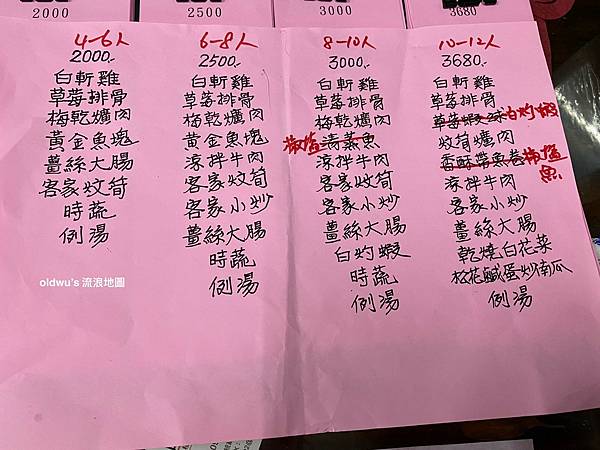 2000
2500
3000
3680
4-6人
2000.-
白斬雞
草莓排骨
梅乾爌肉
黃金魚塊
薑絲大腸
客家炆筍
時蔬
例湯
6-8人
2500.-
白斬雞
草莓排骨
梅乾爌肉
黃金魚塊
涼拌牛肉
客家炆筍
客家小炒
薑絲大腸
時蔬
例湯
8-10人
3000.-
白斬雞
草莓排骨
梅乾爌肉
椒鹽清蒸魚
涼拌牛肉
客家炆筍
客家小炒
薑絲大腸
白灼蝦
時蔬
例湯
10-12人
3680.-
白斬雞
草莓排骨
草莓蝦球白灼蝦
炆筍爌肉
香酥鱈魚卷椒鹽魚
涼拌牛肉
客家小炒
薑絲大腸
乾燒白花菜
松花鹹蛋炒南瓜
例湯
oldwu's 流浪地圖